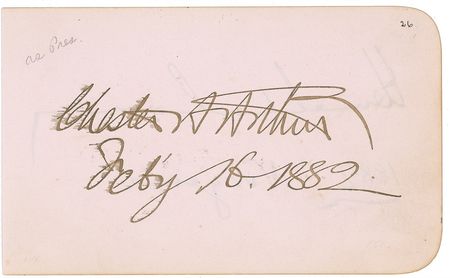 26
as Pres.
Chester A Arthur
Feb'y 16. 1882